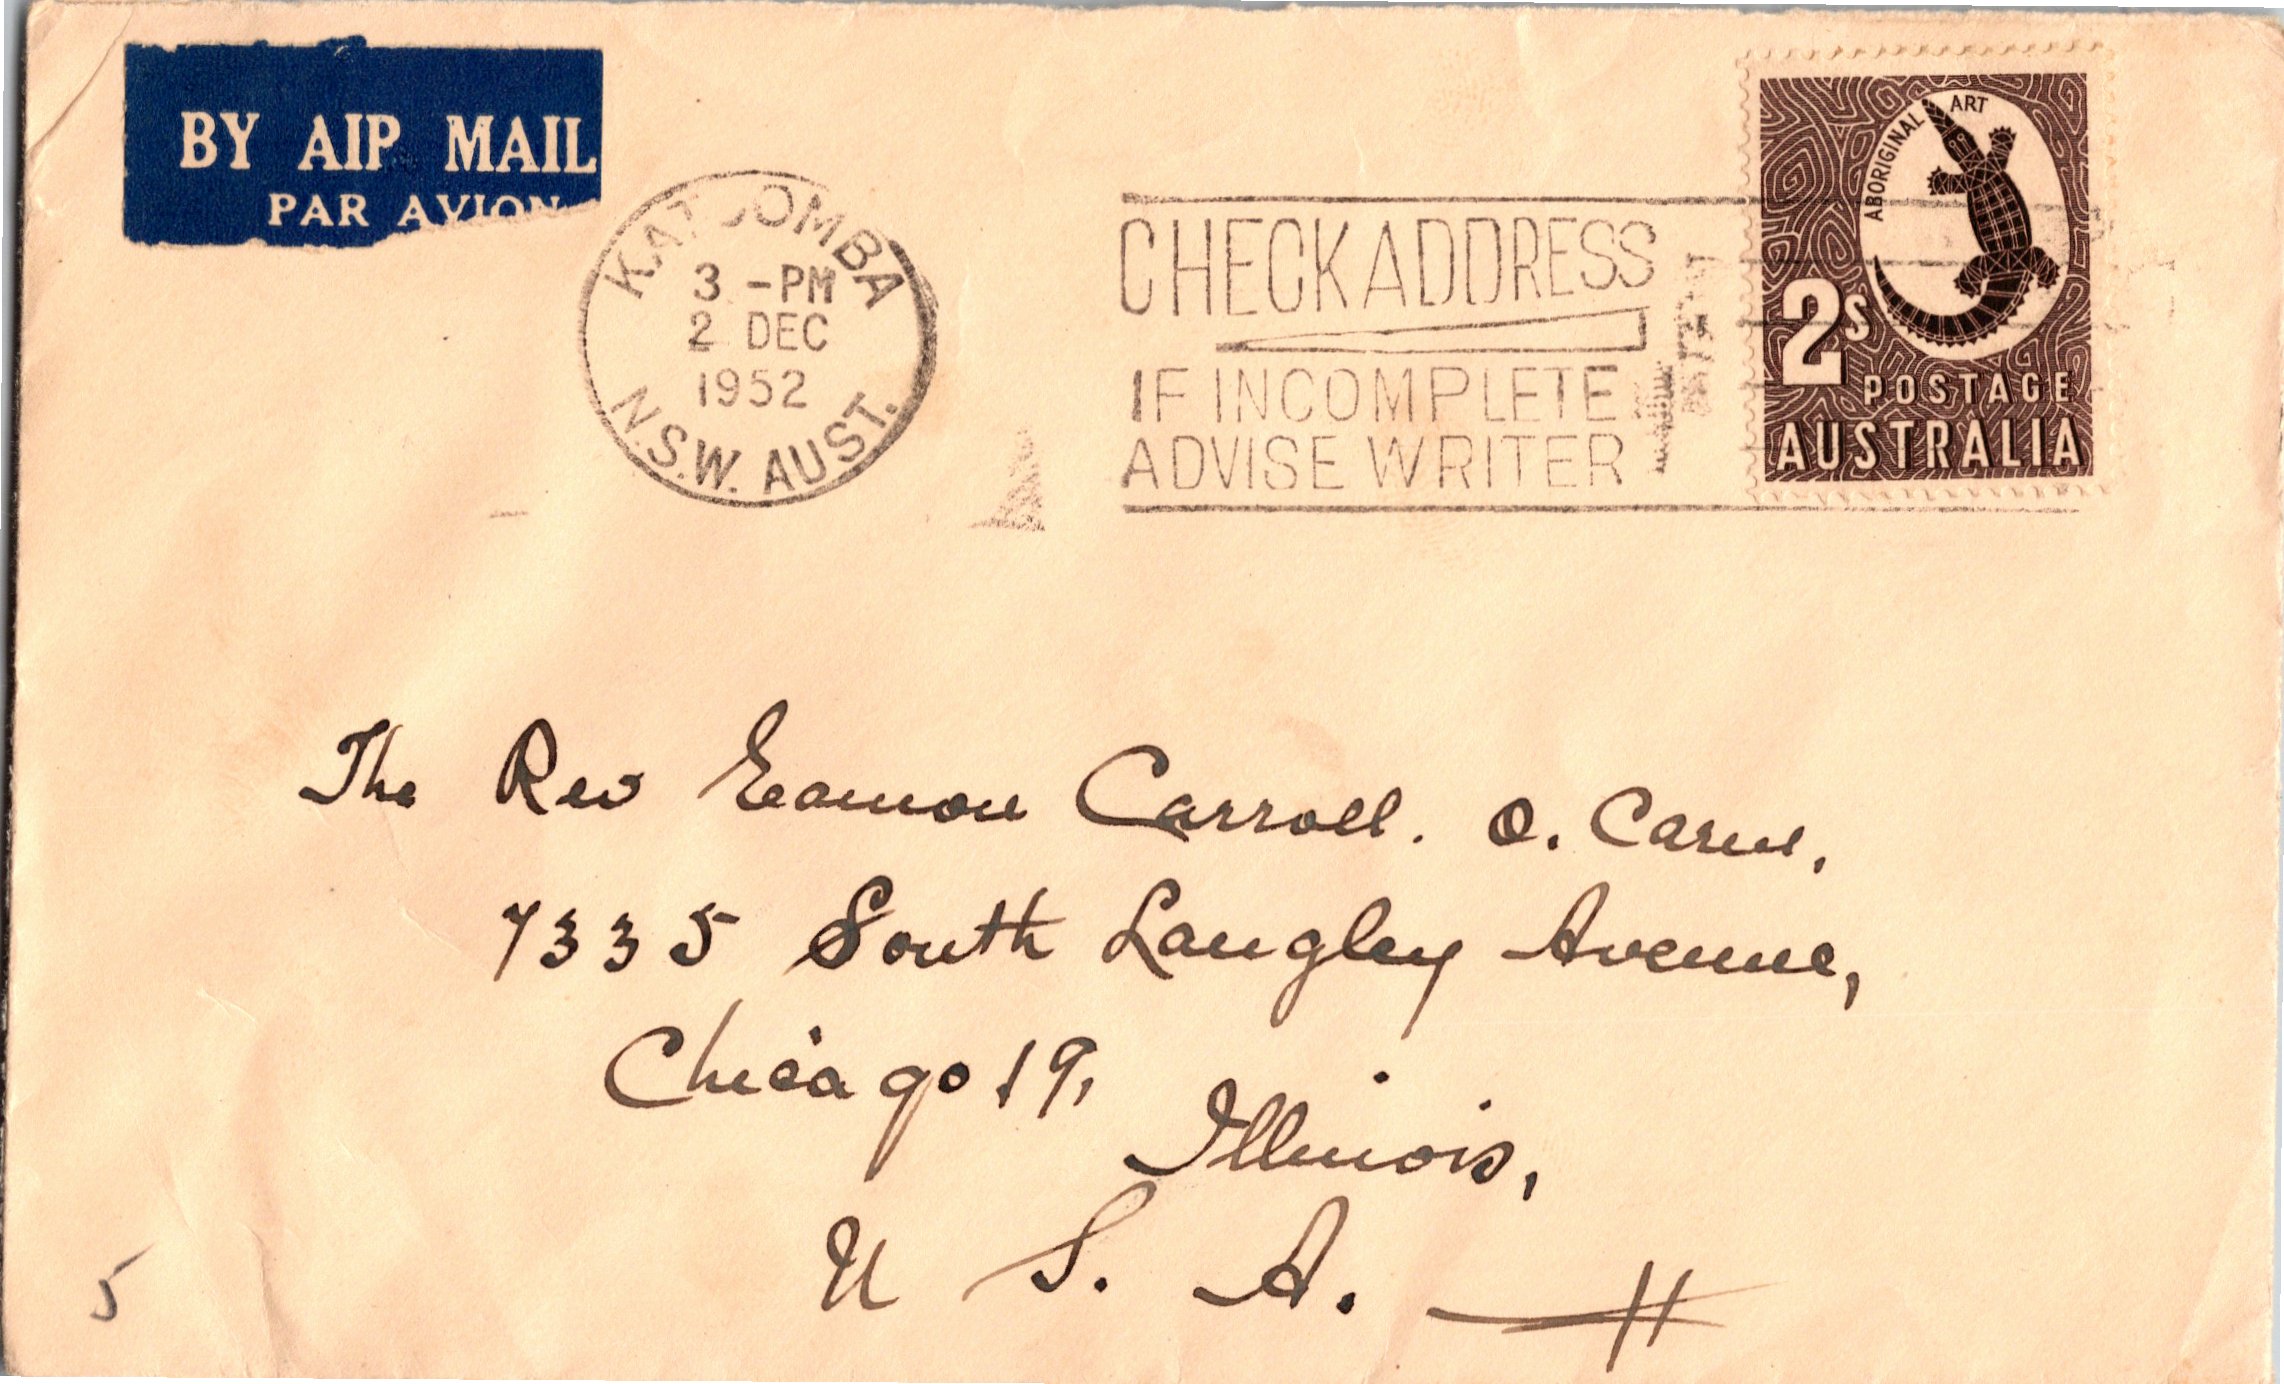 BY AIR MAIL
PAR AVION
KATOOMBA
3 - PM
2 DEC
1952
N.S.W. AUST.
CHECK ADDRESS
IF INCOMPLETE
ADVISE WRITER
ABORIGINAL ART
2S
POSTAGE
AUSTRALIA
The Rev Eamon Carroll. O. Carm,
7335 South Langley Avenue,
Chicago 19,
Illinois,
U S. A.
5